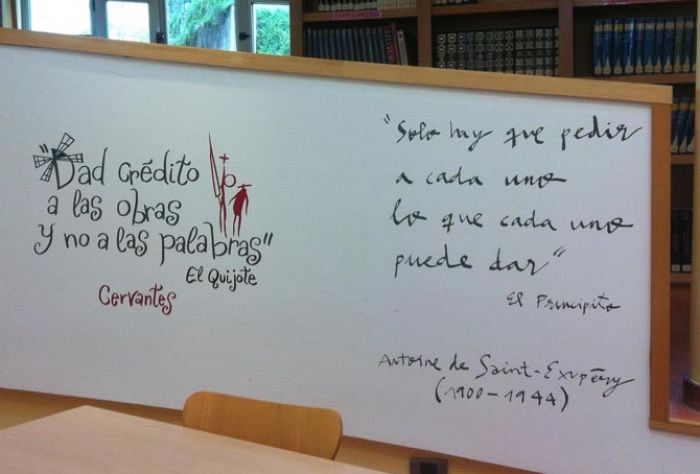 "Dad crédito
a las obras
y no a las palabras"
El Quijote
Cervantes
"Solo hay que pedir
a cada uno
lo que cada uno
puede dar"
El Principito
Antoine de Saint-Exupéry
(1900-1944)